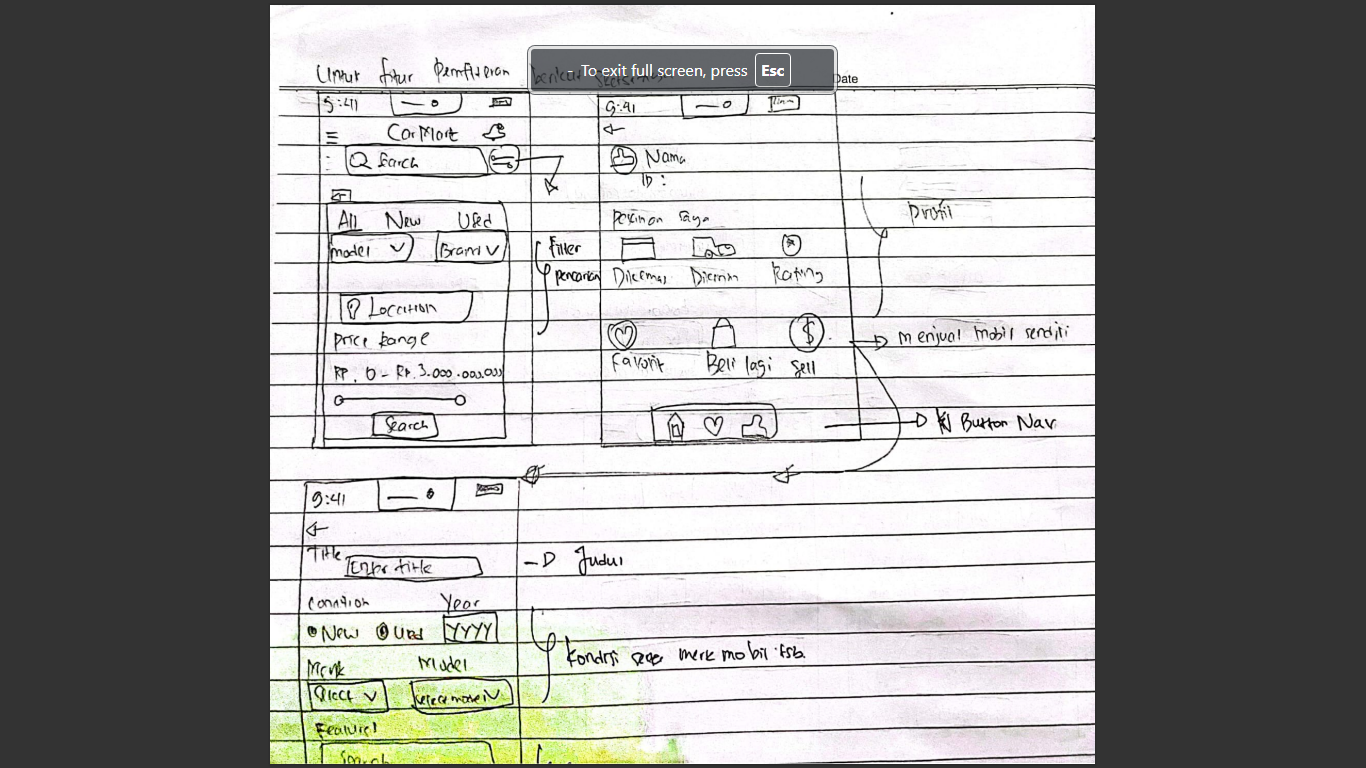 Untuk fitur Pemfilteran
To exit full screen, press Esc
Date
9:41
CarMart
Search
All New Used
model Brand
Location
Price Range
RP. 0 - RP. 3.000.000.000
Search
Filter
pencarian
9:41
Nama
ID :
Pesanan Saya
Dikemas Dikirim Rating
Favorit Beli lagi Sell
Profil
menjual mobil sendiri
Button Nav
9:41
Title Enter title
Judul
Condition Year
New Used YYYY
Merk Model
Select Select model
Kondisi merk mobil tsb.
Feature